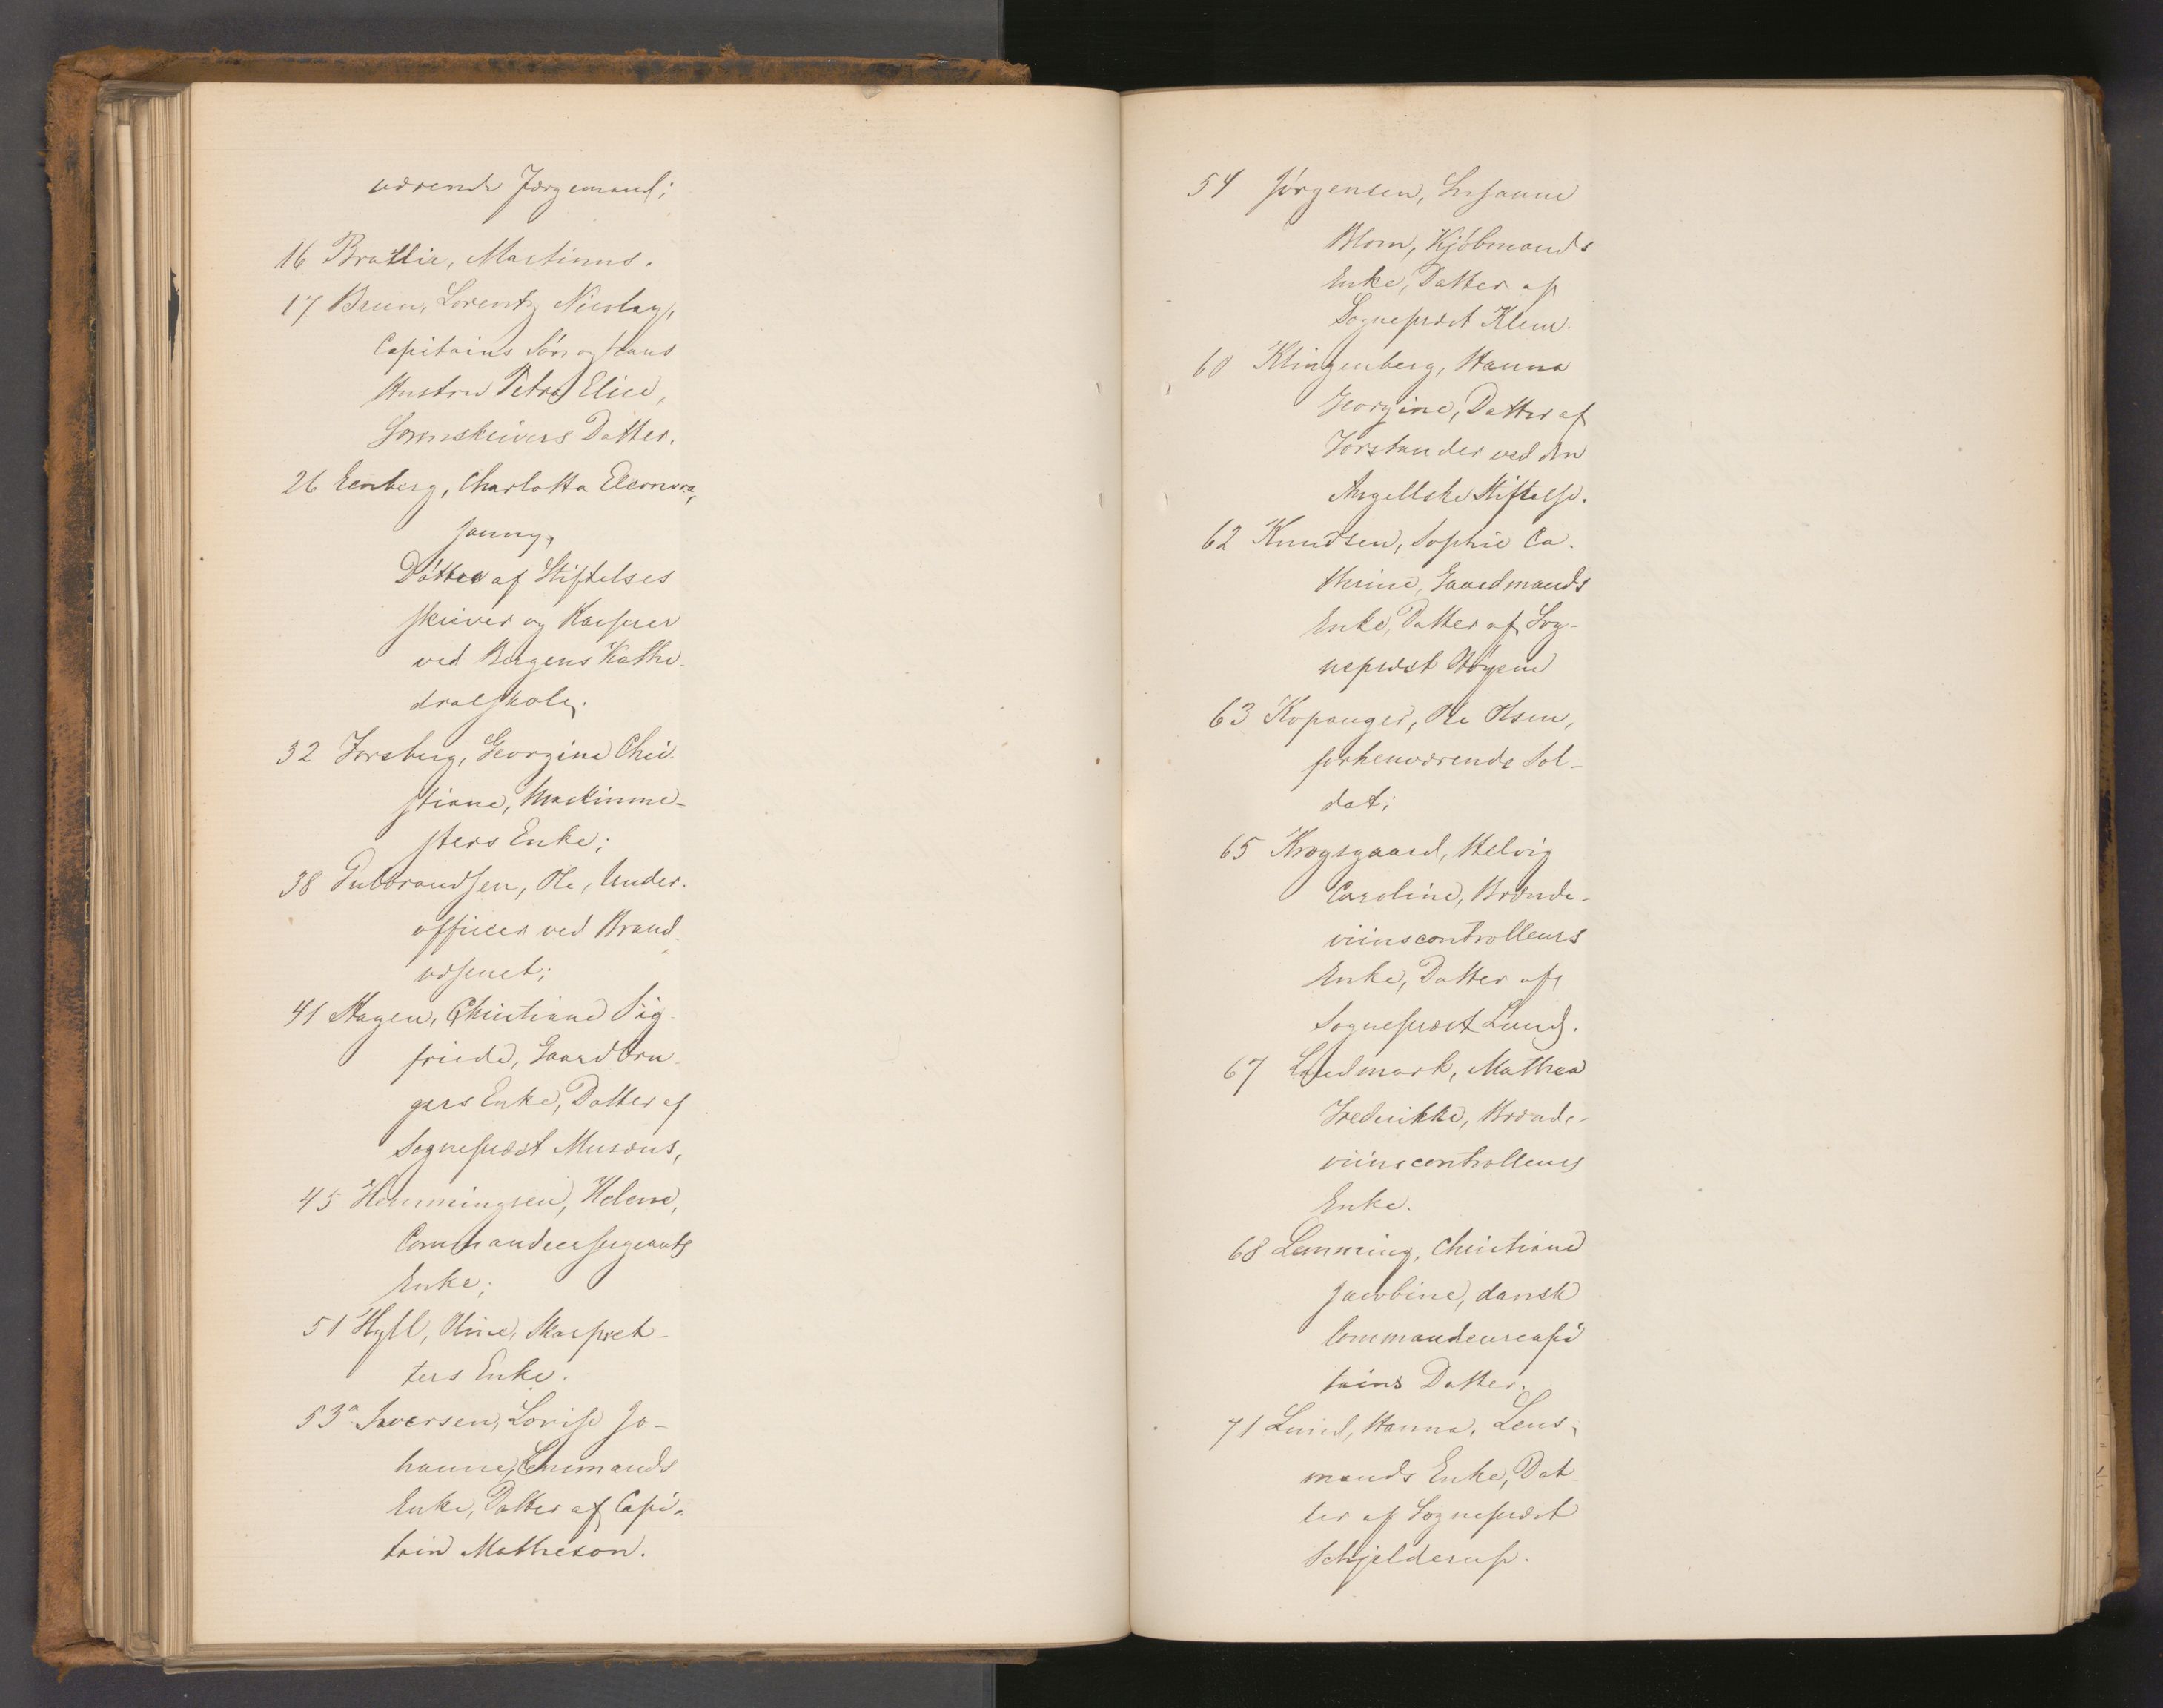 værende Færgemand;
16 Bratlie, Martinus.
17 Brun, Lorentz Nicolay,
Capitains Søn og hans
Hustru Petra Elice,
Sorenskrivers Datter.
26 Eenberg, Charlotta Eleonora,
Jenny,
Datter af Stiftelses
skriver og Kasserer
ved Bergens Kathe-
dralskole.
32 Forsberg, Georgine Chri-
stiane, Maskinme-
sters Enke;
38 Gulbrandsen, Ole, Under-
officer ved Brand-
væsenet;
41 Hagen, Christiane Sig-
friede, Gaardbru-
gers Enke, Datter af
Sognepræst Musæus,
45 Hemmingsen, Helene,
Commandeersergeants
Enke;
51 Hyll, Oline, Skarpret-
ters Enke.
53a Iversen, Lovise Jo-
hanne, Lensmands
Enke, Datter af Capi-
tain Matheson.
54 Jørgensen, Susanne
Blom, Kjøbmands
Enke, Datter af
Sognepræst Klem.
60 Klingenberg, Hanna
Georgine, Datter af
Forstander ved den
Angellske Stiftelse.
62 Knudsen, Sophie Ca-
thrine, Gaardmands
Enke, Datter af Sog-
nepræst Høyem
63 Kopanger, Ole Olsen,
forhenværende Sol-
dat;
65 Krogsgaard, Helvig
Caroline, Brænde-
viinscontrolleurs
Enke, Datter af
Sognepræst Lund.
67 Landmark, Mathea
Frederikke, Brænde-
viinscontrolleurs
Enke.
68 Lemming, Christiane
Jacobine, dansk
Commandeurcapi
tains Datter.
71 Lund, Hanna, Lens-
mands Enke, Dat
ter af Sognepræst
Schjelderup.